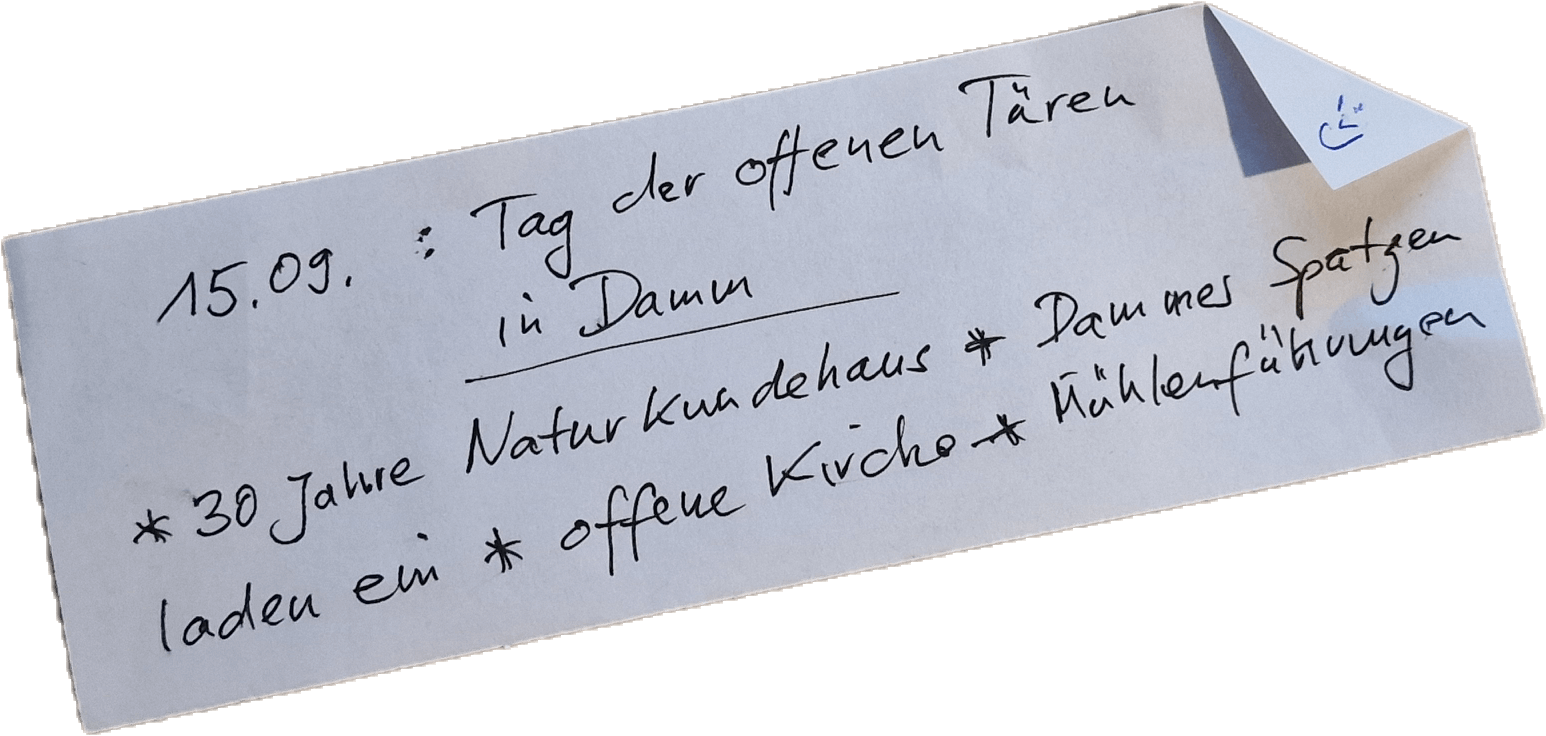 15.09. : Tag der offenen Tären
in Damm
* 30 Jahre Naturkundehaus * Dammer Spatzen
laden ein * offene Kirche * Mühlenführungen